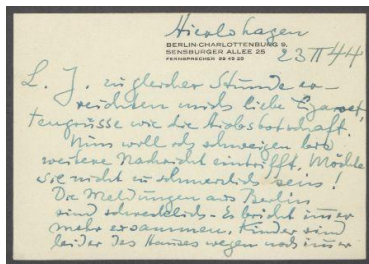 Hirolshagen
BERLIN-CHARLOTTENBURG 9.
SENSBURGER ALLEE 25
FERNSPRECHER
23 II 44
L. J. zu gleicher Stunde er-
reichten mich liebe
tengrüsse wie die Hiobsbotschaft.
Nun will ich schweigen bis
weitere Nachricht eintrifft. Möchte
sie nicht zu schmerzlich sein!
Die Meldungen aus Berlin
sind schrecklich. Es bricht immer
mehr zusammen. Kinder sind
leider des Hauses wegen noch immer